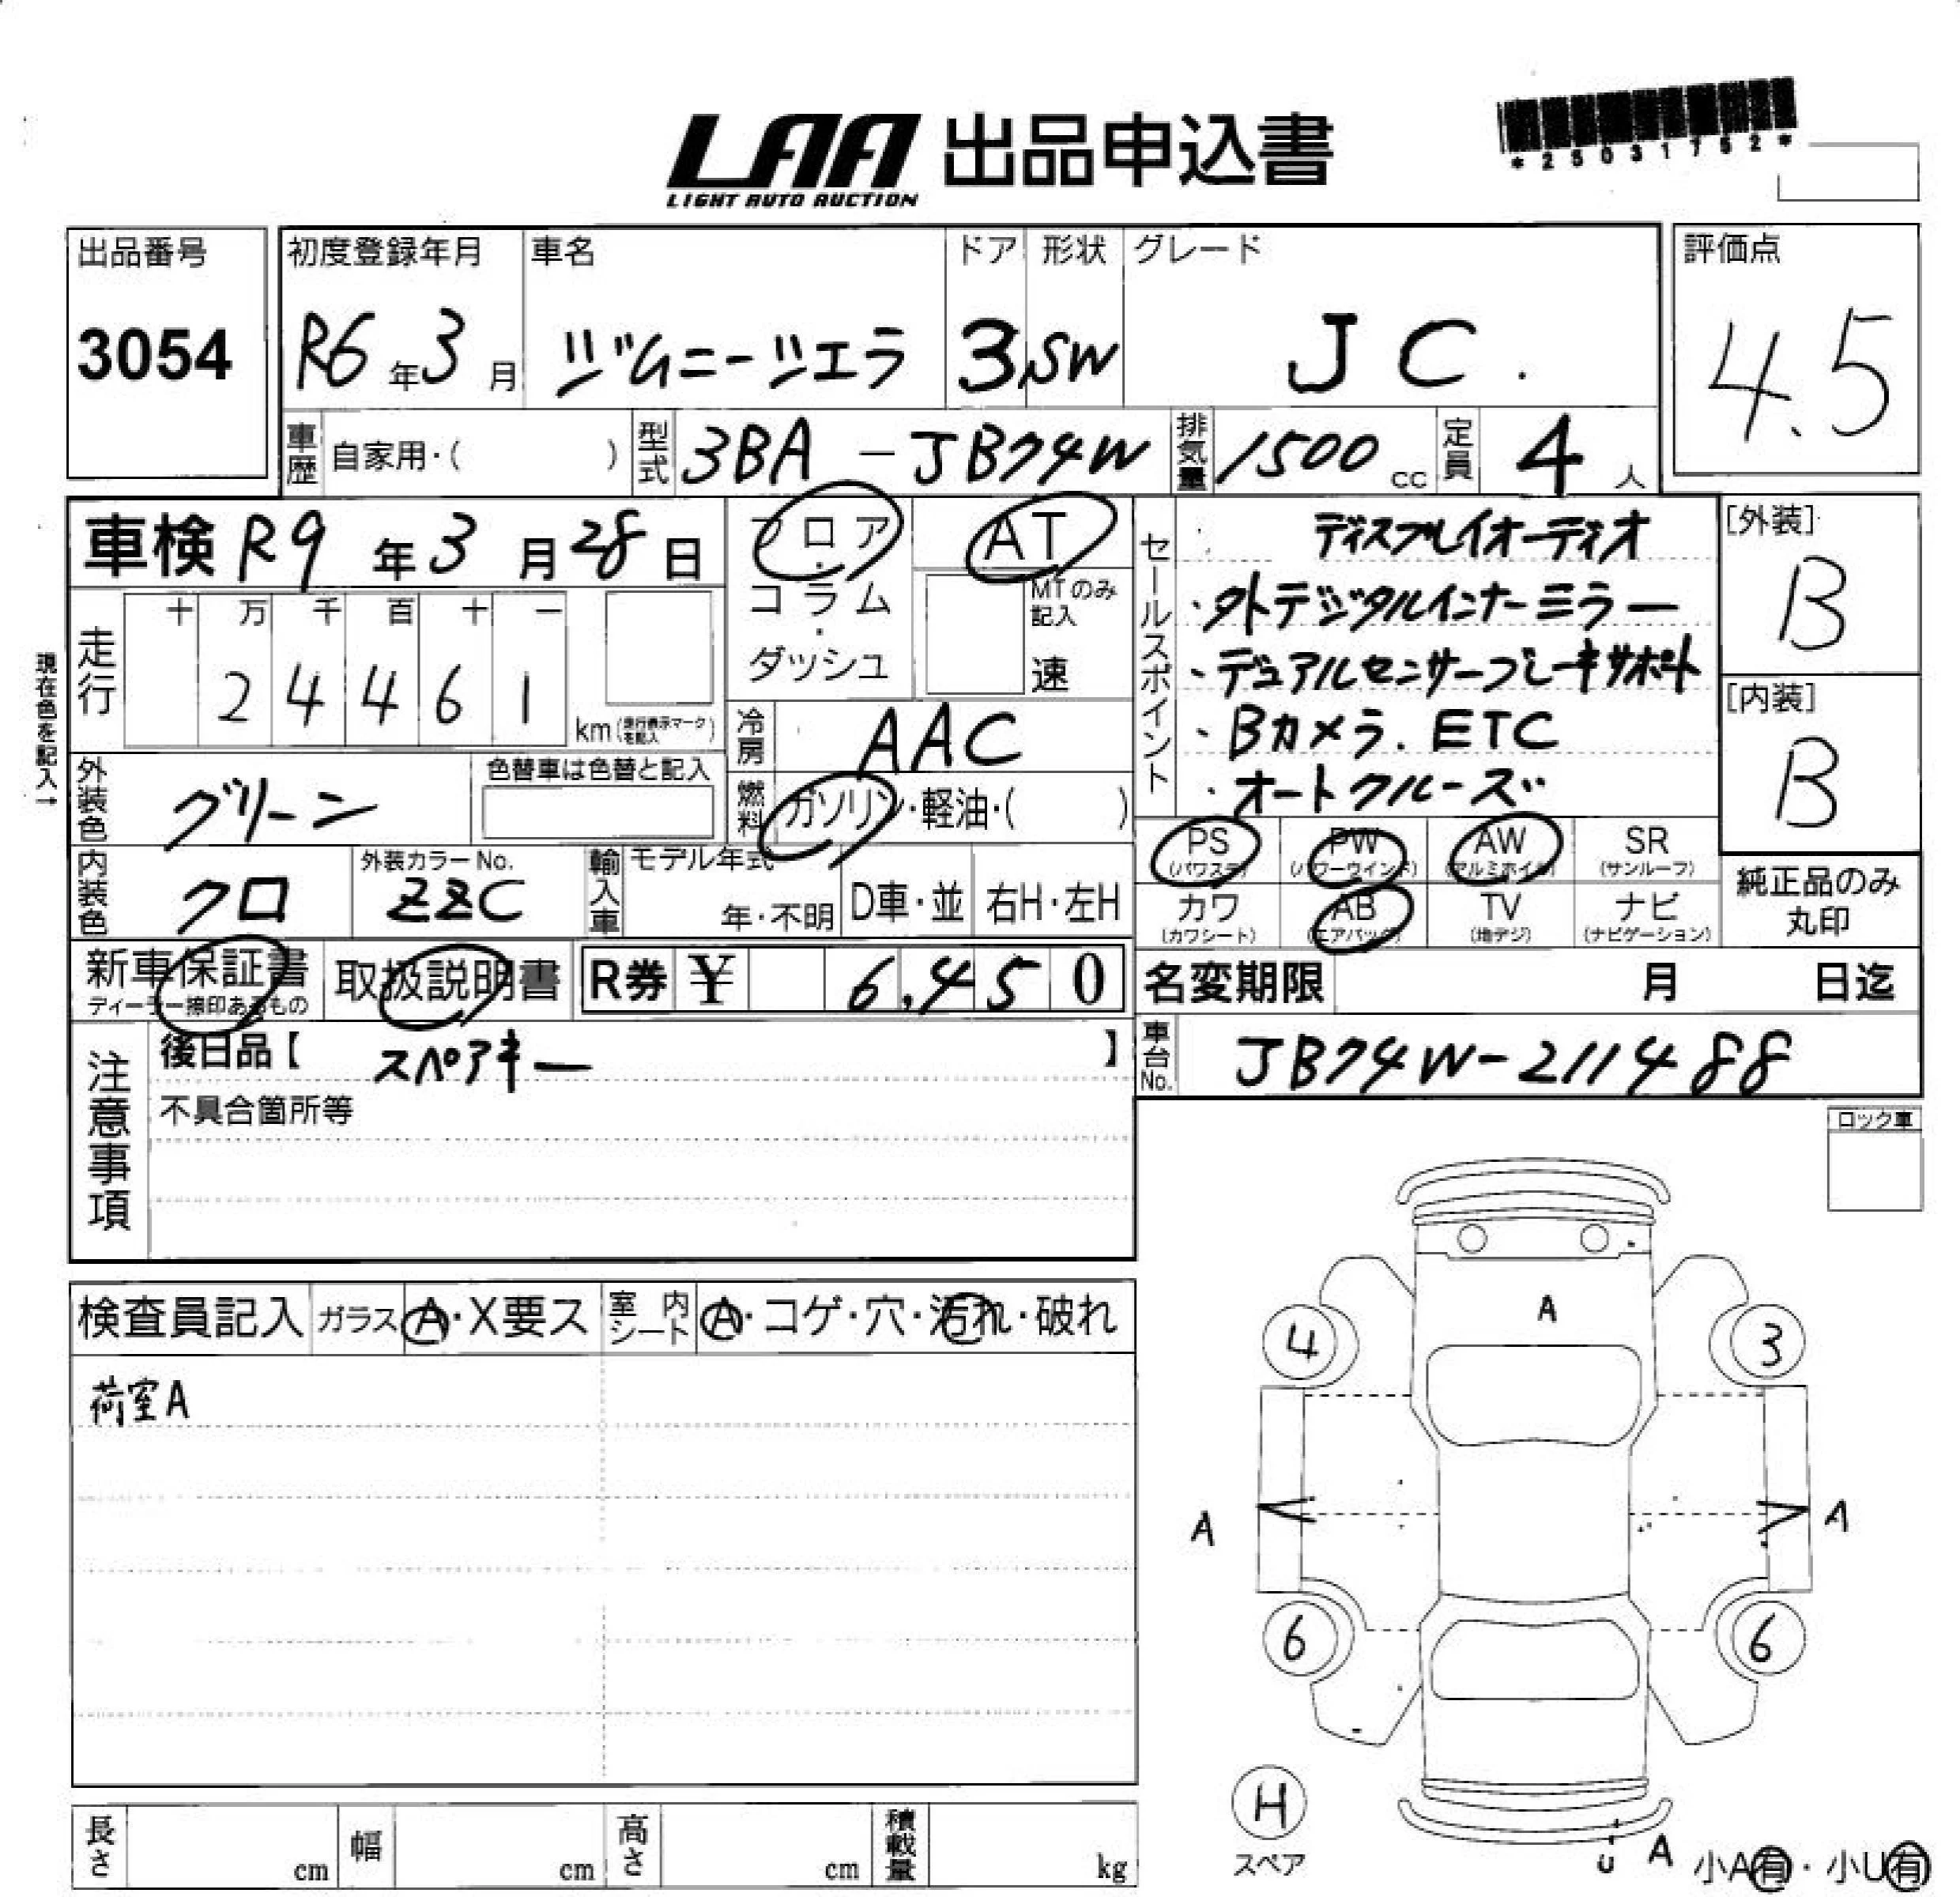 LAA 出品申込書
LIGHT AUTO AUCTION
*25031752*
出品番号 初度登録年月 車名 ドア 形状 グレード 評価点
3054 R6年3月 ジムニーシエラ 3 SW JC. 4.5
車歴 自家用・( ) 型式 3BA-JB74W 排気量 1500cc 定員 4人
車検 R9年3月28日 フロア・コラム・ダッシュ AT
MTのみ記入 速
走行 十 万 千 百 十 一
24461 km(走行表示マークを記入)
現在色を記入→
冷房 AAC
外装色 グリーン 色替車は色替と記入
燃料 ガソリン・軽油・( )
内装色 クロ 外装カラーNo. ZZC
輸入車 モデル年式 年・不明 D車・並 右H・左H
セールスポイント
ディスプレイオーディオ
・外トデジタルインナーミラー
・デュアルセンサーブレーキサポート
・Bカメラ.ETC
・オートクルーズ
[外装] B
[内装] B
PS (パワステ) PW (パワーウインド) AW (アルミホイル) SR (サンルーフ)
カワ (カワシート) AB (エアバック) TV (地デジ) ナビ (ナビゲーション)
純正品のみ丸印
新車保証書 取扱説明書 R券 ¥ 6,450
ディーラー捺印あるもの
名変期限 月 日迄
車台No. JB74W-211488
注意事項
後日品【 スペアキー 】
不具合箇所等
ロック車
検査員記入 ガラス A・X要ス 室内シート A・コゲ・穴・汚れ・破れ
荷室A
A
4 3
A A
6 6
H
スペア
U A 小A有・小U有
長さ cm 幅 cm 高さ cm 積載量 kg